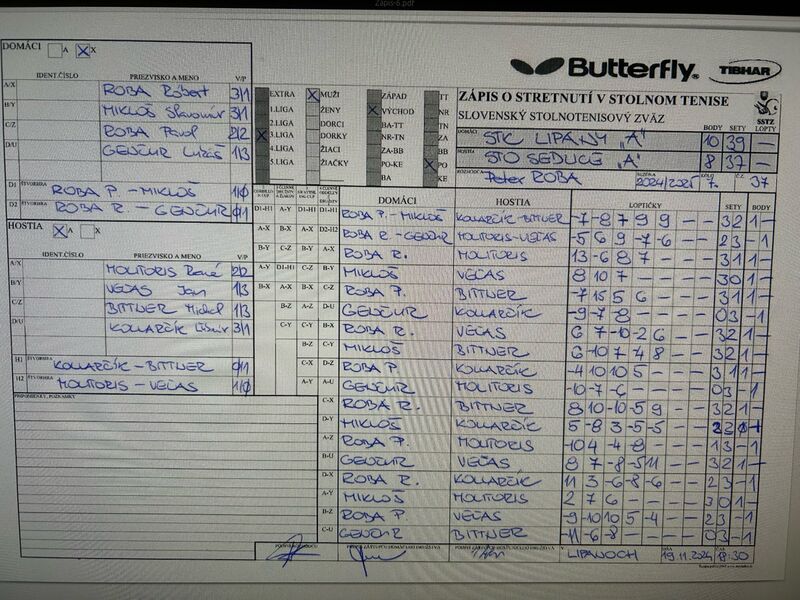 Zápis-6.pdf
DOMÁCI A X
IDENT.ČÍSLO PRIEZVISKO A MENO V/P
A/X ROBA Róbert 3/1
B/Y MIKLOŠ Slavomír 3/1
C/Z ROBA Pavol 2/2
D/U GENČUR Lukáš 1/3
D1 ŠTVORHRA ROBA P. - MIKLOŠ 1/0
D2 ŠTVORHRA ROBA R. - GENČUR 0/1
HOSTIA A X
IDENT.ČÍSLO PRIEZVISKO A MENO V/P
A/X MOLITORIS René 2/2
B/Y VEČAS Jan 1/3
C/Z BITTNER Michal 1/3
D/U KOLLARČÍK 3/1
H1 ŠTVORHRA KOLLARČÍK - BITTNER 0/1
H2 ŠTVORHRA MOLITORIS - VEČAS 1/0
PRIPOMIENKY, POZNÁMKY
Butterfly TIBHAR
EXTRA MUŽI ZÁPAD TT
1.LIGA ŽENY VÝCHOD NR
2.LIGA DORCI BA-TT TN
3.LIGA DORKY NR-TN ZA
4.LIGA ŽIACI ZA-BB BB
5.LIGA ŽIAČKY PO-KE PO
BA KE
ZÁPIS O STRETNUTÍ V STOLNOM TENISE
SLOVENSKÝ STOLNOTENISOVÝ ZVÄZ
SSTZ
BODY SETY LOPTY
DOMÁCI STK LIPANY "A" 10 39 -
HOSTIA STO SEDLICE "A" 8 37 -
ROZHODCA Peter ROBA SÚŤAŽ 2024/2025 7. Č. 37
DOMÁCI HOSTIA LOPTIČKY SETY BODY
D1-H1 A-Y D1-H1 D1-H1 ROBA P. - MIKLOŠ KOLLARČÍK-BITTNER -7 -8 7 9 9 - - 3 2 1 -
A-X B-X A-X D2-H2 ROBA R. - GENČUR MOLITORIS-VEČAS -5 6 9 -7 -6 - - 2 3 - 1
B-Y C-Z B-Y A-X ROBA R. MOLITORIS -13 -6 8 7 3 1 1 -
A-Y D1-H1 C-Z B-Y MIKLOŠ VEČAS 8 10 7 - - 3 0 1 -
B-X A-X B-X C-Z ROBA P. BITTNER -7 15 5 6 - - - 3 1 1 -
B-Z A-Z D-U GENČUR KOLLARČÍK -9 -7 -8 - - - - 0 3 - 1
C-Y C-Y B-X ROBA R. VEČAS 6 7 -10 -2 6 - - 3 2 1 -
B-Z C-Y MIKLOŠ BITTNER 6 -10 7 -4 8 - - 3 2 1 -
C-X D-Z ROBA P. KOLLARČÍK -4 10 10 5 - - - 3 1 1 -
A-Y A-U GENČUR MOLITORIS -10 -7 -6 - - 0 3 - 1
C-X ROBA R. BITTNER 8 10 -10 -5 9 - - 3 2 1 -
D-Y MIKLOŠ KOLLARČÍK 5 -8 3 -5 -5 - -
A-Z ROBA P. MOLITORIS -10 4 -4 -8 - - - 1 3 - 1
B-U GENČUR VEČAS 8 7 -8 -5 11 - - 3 2 1 -
D-X ROBA R. KOLLARČÍK 11 3 -6 -8 -6 - - 2 3 - 1
A-Y MIKLOŠ MOLITORIS 2 7 6 - - - - 3 0 1 -
B-Z ROBA P. VEČAS -9 -10 10 5 -4 - - 2 3 - 1
C-U GENČUR BITTNER -11 -6 -8 - - - - 0 3 - 1
V LIPANOCH DŇA 19.11.2024 18:30